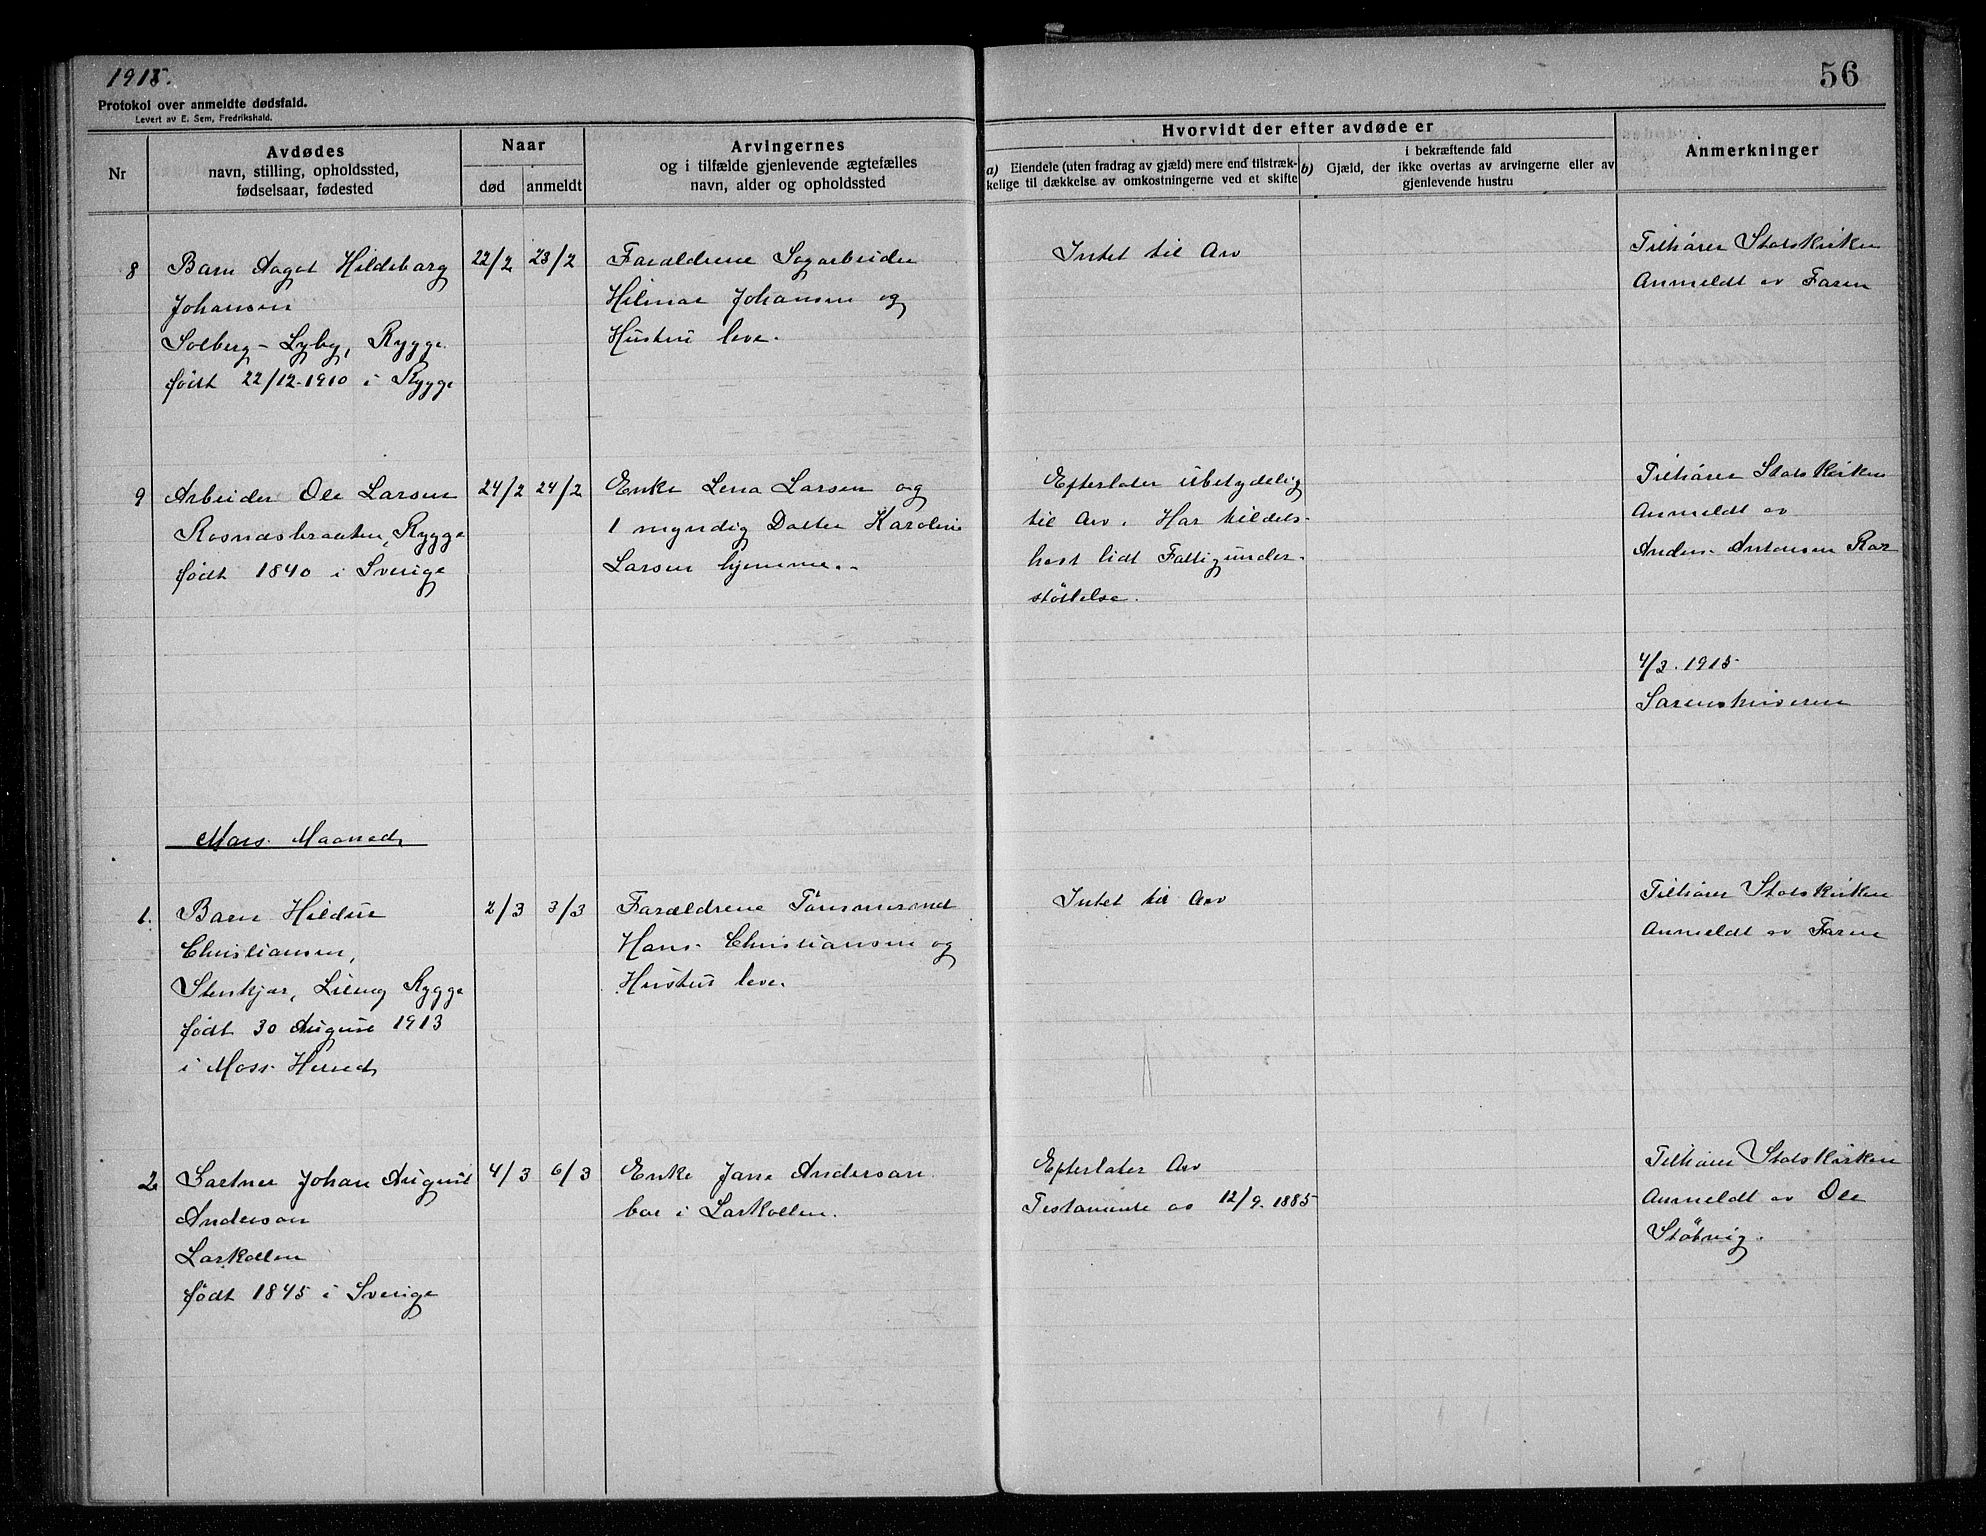 1915.
Protokol over anmeldte dødsfald.
Levert av E. Sem, Fredrikshald.
56
Nr
Avdødes
navn, stilling, opholdssted,
fødselsaar, fødested
Naar
død
anmeldt
Arvingernes
og i tilfælde gjenlevende ægtefælles
navn, alder og opholdssted
Hvorvidt der efter avdøde er
a) Eiendele (uten fradrag av gjæld) mere end tilstræk-
kelige til dækkelse av omkostningerne ved et skifte
i bekræftende fald
b) Gjæld, der ikke overtas av arvingerne eller av
gjenlevende hustru
Anmerkninger
8
Barn Aagot Hildeborg
Johansen
Solberg - Lyby, Rygge
født 22/12-1910 i Rygge
22/2
23/2
Forældrene Sagarbeider
Hilmar Johansen og
Hustru leve.
Intet til Arv
Tilhører Statskirken
Anmeldt av Faren
9
Arbeider Ole Larsen
Rosnæsbraaten, Rygge
født 1840 i Sverige
24/2
24/2
Enke Lena Larsen og
1 myndig Datter Karoline
Larsen hjemme.
Efterlater ubetydelig
til Arv. Har tildels
høst lidt Fattigunder-
støttelse.
Tilhører Statskirken
Anmeldt av
Anders Antonsen Rør
4/3. 1915
Sorenskriveren
Mars Maaned
1.
Barn Hildur
Christiansen,
Stenkjær, Rygge
født 30 August 1913
i Moss Herred
2/3
3/3
Forældrene Tømmermd
Hans Christiansen og
Hustru leve.
Intet til Arv
Tilhører Statskirken
Anmeldt av Faren
2
Gartner Johan August
Anderson
Larkollen
født 1845 i Sverige
4/3
6/3
Enke Jane Anderson
bor i Larkollen.
Efterlater Arv
Testamente av 12/9. 1885
Tilhører Statskirken
Anmeldt av Ole
Støtvig.